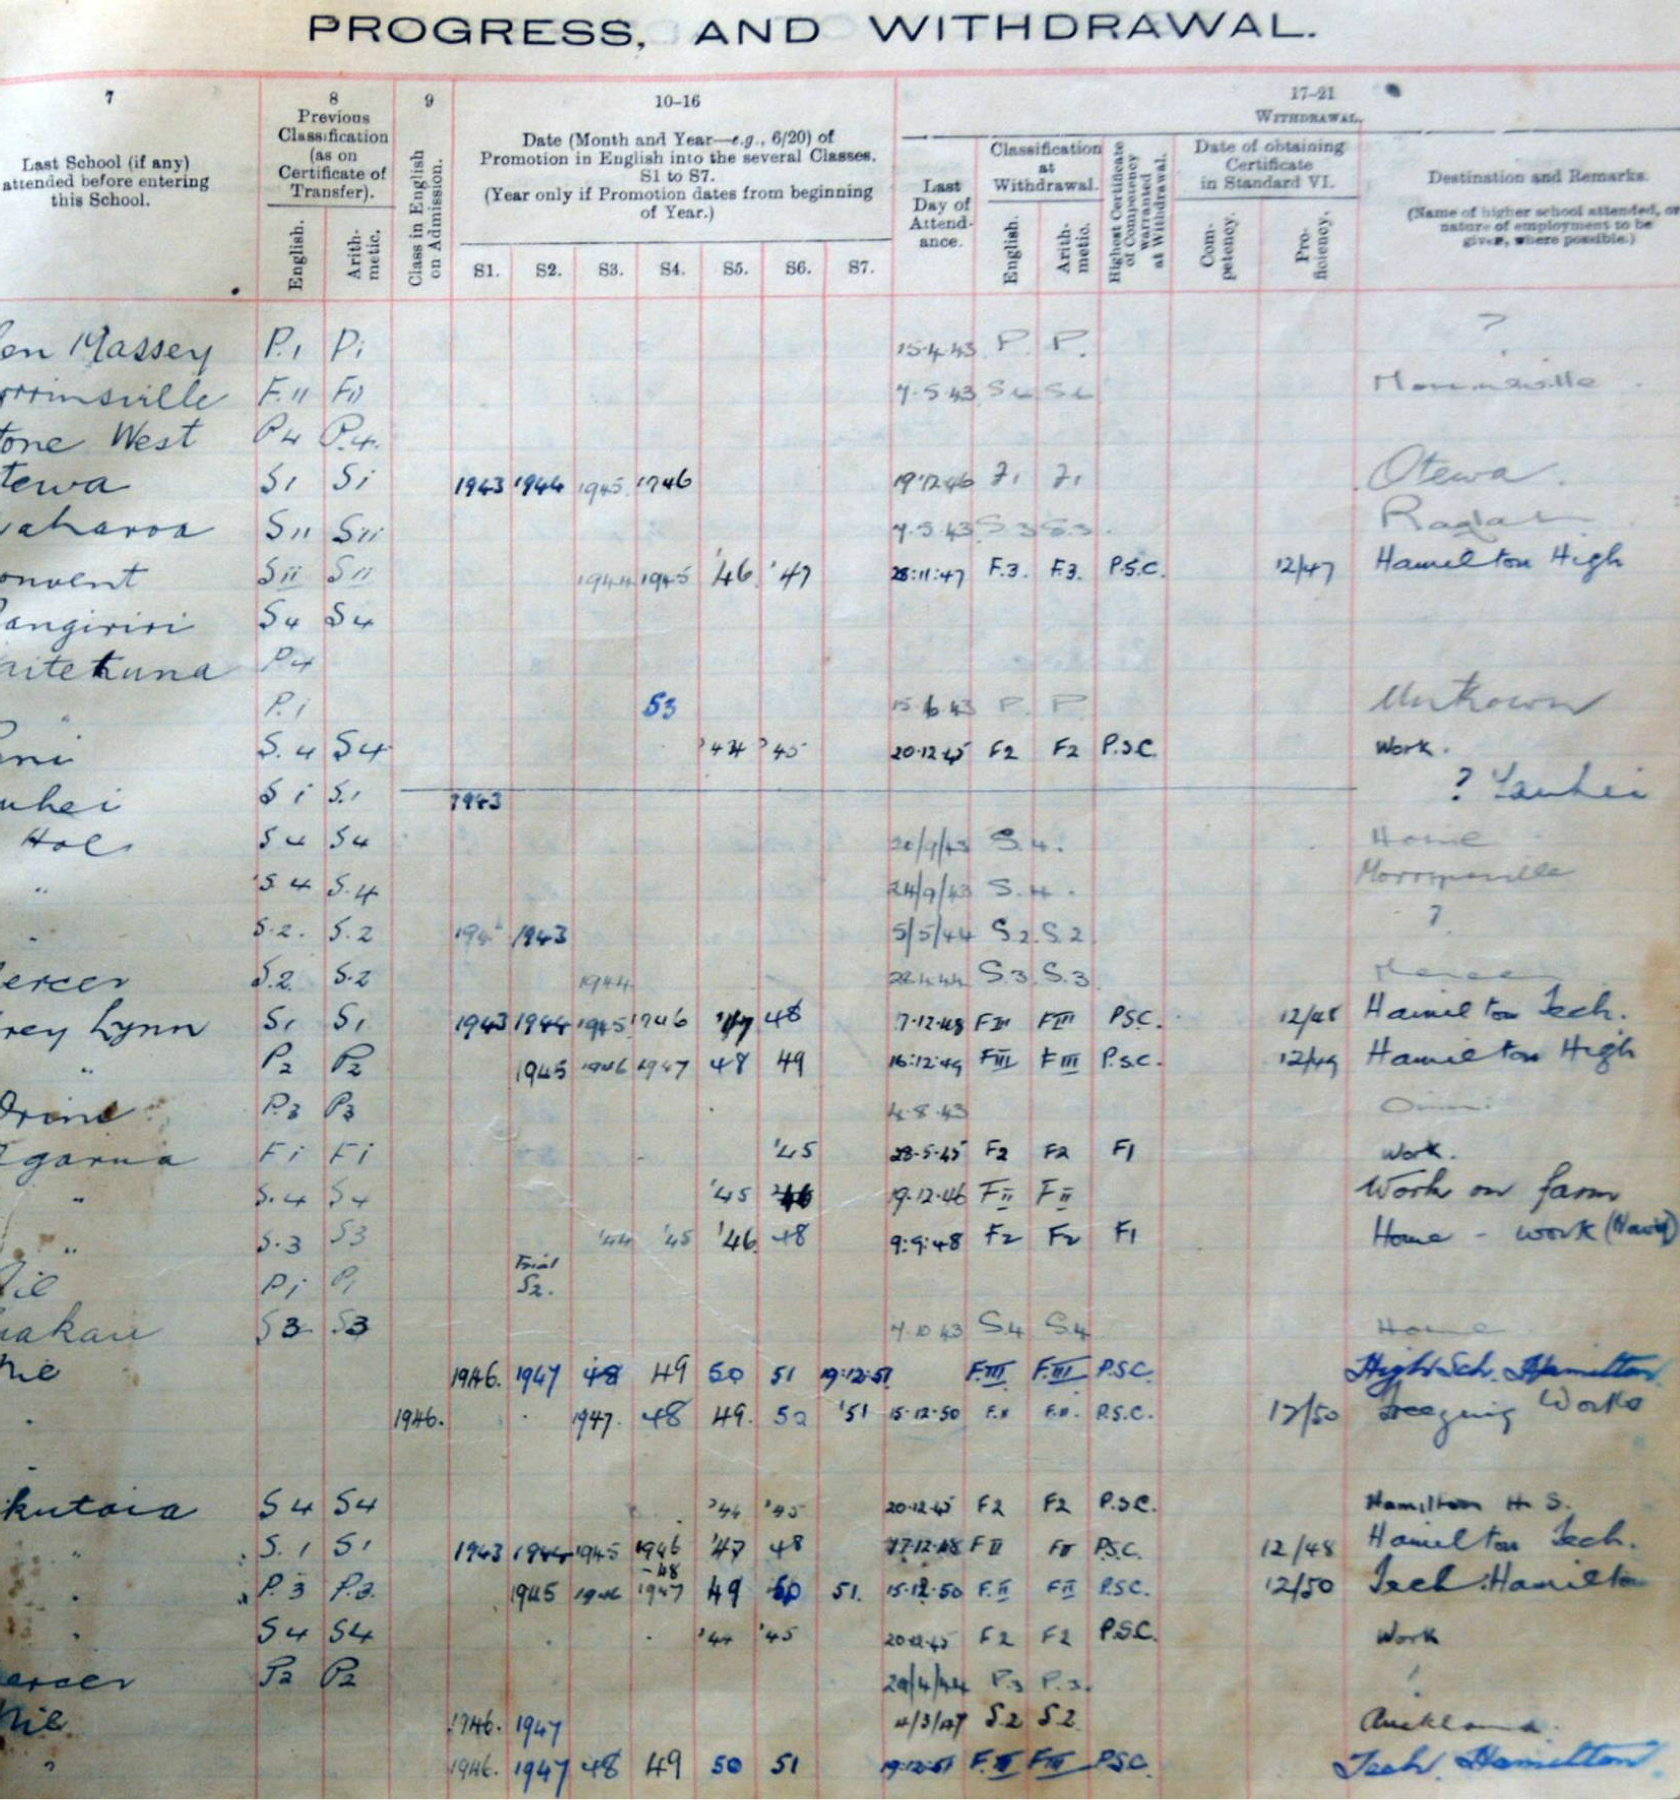 PROGRESS, AND WITHDRAWAL.
7 8 9 10–16 17–21
Last School (if any) attended before entering this School.
Previous Classification (as on Certificate of Transfer).
English. Arithmetic.
Class in English on Admission.
Date (Month and Year—e.g., 6/20) of Promotion in English into the several Classes, S1 to S7.
(Year only if Promotion dates from beginning of Year.)
S1. S2. S3. S4. S5. S6. S7.
WITHDRAWAL.
Last Day of Attendance.
Classification at Withdrawal.
English. Arithmetic.
Highest Certificate of Competency warranted at Withdrawal.
Date of obtaining Certificate in Standard VI.
Competency. Proficiency.
Destination and Remarks.
(Name of higher school attended, or nature of employment to be given, where possible.)
en Massey P.1 P1 15.4.43 P. P. ?
rrinsville F.11 F11 7.5.43
tone West P4 P.4.
tewa S1 S1 1943 1944 1945 1946 19.12.46 F1 F1 Otewa.
aharoa S11 S11 7.5.43 S.3 S.3. Raglan
onvent Sii Sii 1944 1945 '46 '47 28:11:47 F.3. F.3. P.S.C. 12/47 Hamilton High
angiriri S4 S4
aitetuna P4
" P.1 S3 15.6.43 P. P Unknown
ni S.4 S4 '44 '45 20.12.45 F2 F2 P.S.C. Work.
uhei S1 S.1 1943 ? Tauhei
Hoe S4 S4 20/9/43 S.4. Home
" S4 S.4 24/9/43 S.4. Morrinsville
" S.2. S.2 1943 5/5/44 S.2. S.2 ?
ercer S.2. S.2 1944 22.4.44 S.3 S.3. Mercer
rey Lynn S1 S1 1943 1944 1945 1946 '47 48 17.12.48 FIII FIII P.S.C. 12/48 Hamilton Tech.
" P2 P2 1945 1946 1947 48 49 16:12:49 FIII FIII P.S.C. 12/49 Hamilton High
Orini P.3 P3 4.8.43
garua F1 F1 '45 28.5.45 F2 F2 F1 Work.
" S.4 S4 '45 46 19.12.46 FII FII Work on farm
" S.3 S3 '44 '45 '46 48 9:9:48 F2 F2 F1 Home - work
Nil P1 P1 Trial S2.
akau S3 S3 7.10.43 S.4 S.4 Home
Nil 1946. 1947 48 49 50 51 19:12:51 F.III F.III P.S.C. High Sch. Hamilton.
" 1946. 1947. 48 49. 50 '51 15.12.50 F.II F.II. P.S.C. 12/50 Freezing Works
kutaia S4 S4 '44 '45 20.12.45 F2 F2 P.S.C. Hamilton H.S.
" S.1 S1 1943 1944 1945 1946 '47 48 17.12.48 FII FII P.S.C. 12/48 Hamilton Tech.
" P.3 P.3. 1945 1946 1947 -48 49 50 51. 15.12.50 F.II FII P.S.C. 12/50 Tech. Hamilton
" S4 S4 '44 '45 20.12.45 F2 F2 P.S.C. Work
ercer P2 P2 20/4/44 P.3 P.3.
Nil 1946. 1947 4/3/47 S.2 S2 Auckland.
" 1946. 1947 48 49 50 51 19:12:51 F.III FIII P.S.C. Tech. Hamilton.